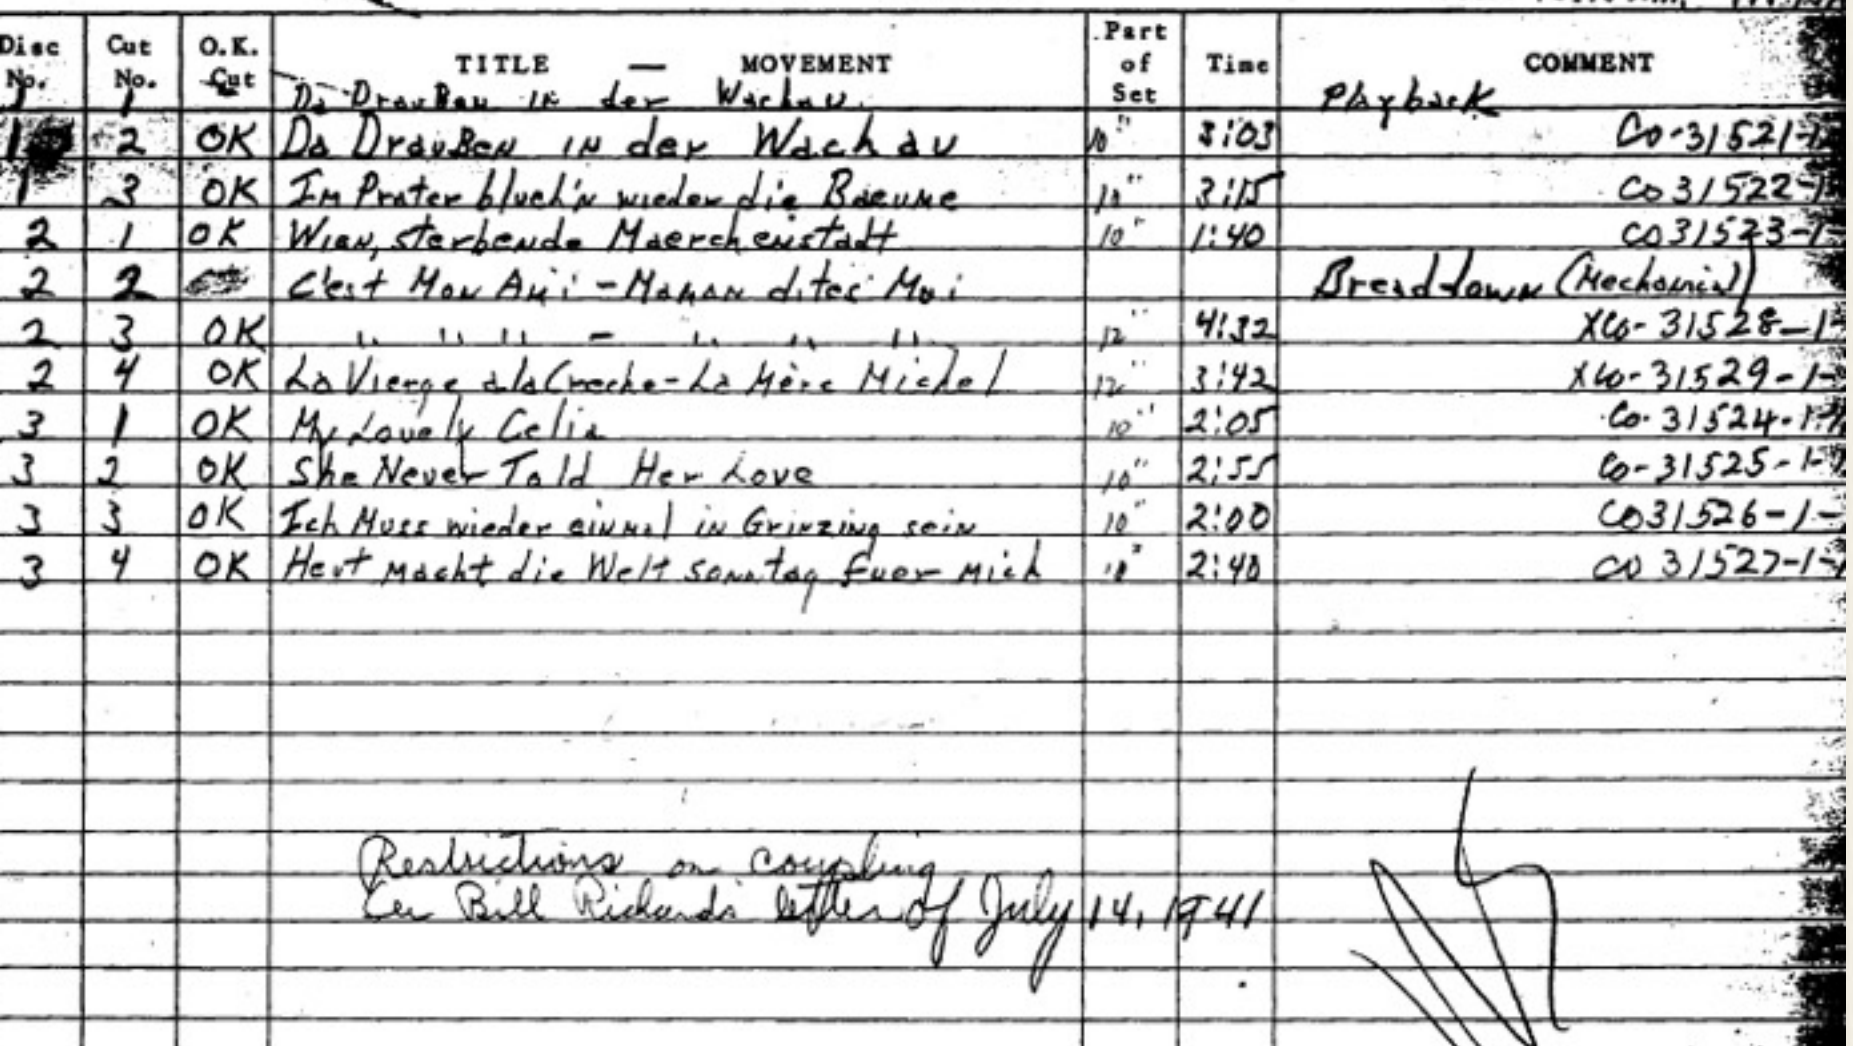 Disc No. Cut No. O.K. Cut TITLE — MOVEMENT Part of Set Time COMMENT
1 1 Da Draußen in der Wachau. Playback
1 2 OK Da Draußen in der Wachau 10" 3:03 Co-31521-1
1 3 OK Im Prater blueh'n wieder die Baeume 10" 3:15 Co 31522-1
2 1 OK Wien, sterbende Maerchenstadt 10" 1:40 CO31523-1-
2 2 C'est Mon Ami - Maman dites Moi (Mechanical)
2 3 OK " " " - " " " 12" 4:32 XCo-31528-1-
2 4 OK La Vierge a la Creche - La Mère Michel 12" 3:42 XCo-31529-1-
3 1 OK My Lovely Celia 10" 2:05 Co-31524-1-
3 2 OK She Never Told Her Love 10" 2:55 Co-31525-1-
3 3 OK Ich Muss wieder einmal in Grinzing sein 10" 2:00 CO31526-1-
3 4 OK Heut macht die Welt sonntag fuer mich 10" 2:40 CO 31527-1-
Restrictions on coupling
Bill Richards' letter of July 14, 1941